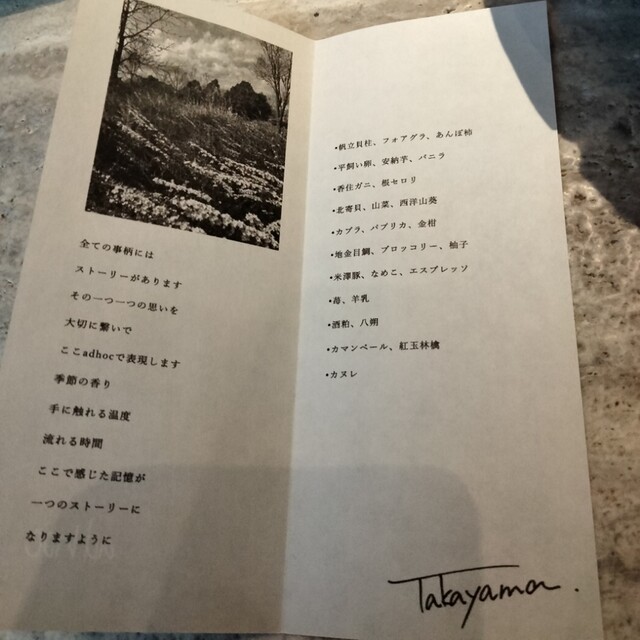 全ての事柄には
ストーリーがあります
その一つ一つの思いを
大切に繋いで
ここadhocで表現します
季節の香り
手に触れる温度
流れる時間
ここで感じた記憶が
一つのストーリーに
なりますように
・帆立貝柱、フォアグラ、あんぽ柿
・平飼い卵、安納芋、バニラ
・香住ガニ、根セロリ
・北寄貝、山菜、西洋山葵
・カブラ、パプリカ、金柑
・地金目鯛、ブロッコリー、柚子
・米澤豚、なめこ、エスプレッソ
・苺、羊乳
・酒粕、八朔
・カマンベール、紅玉林檎
・カヌレ
Takayama.